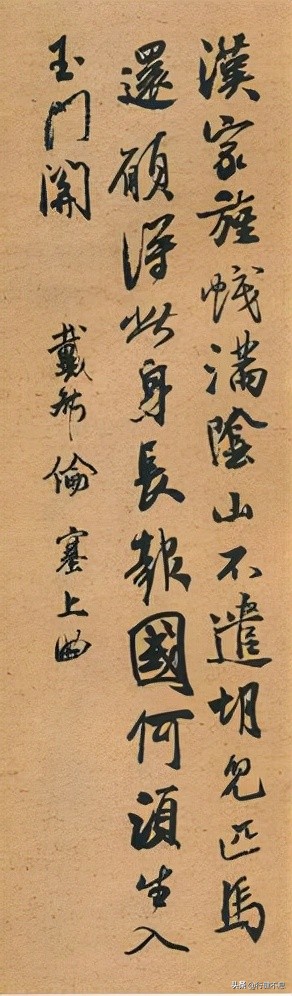 漢家旌幟滿陰山不遣胡兒匹馬
還願得此身長報國何須生入
玉門關
戴叔倫 塞上曲
头条